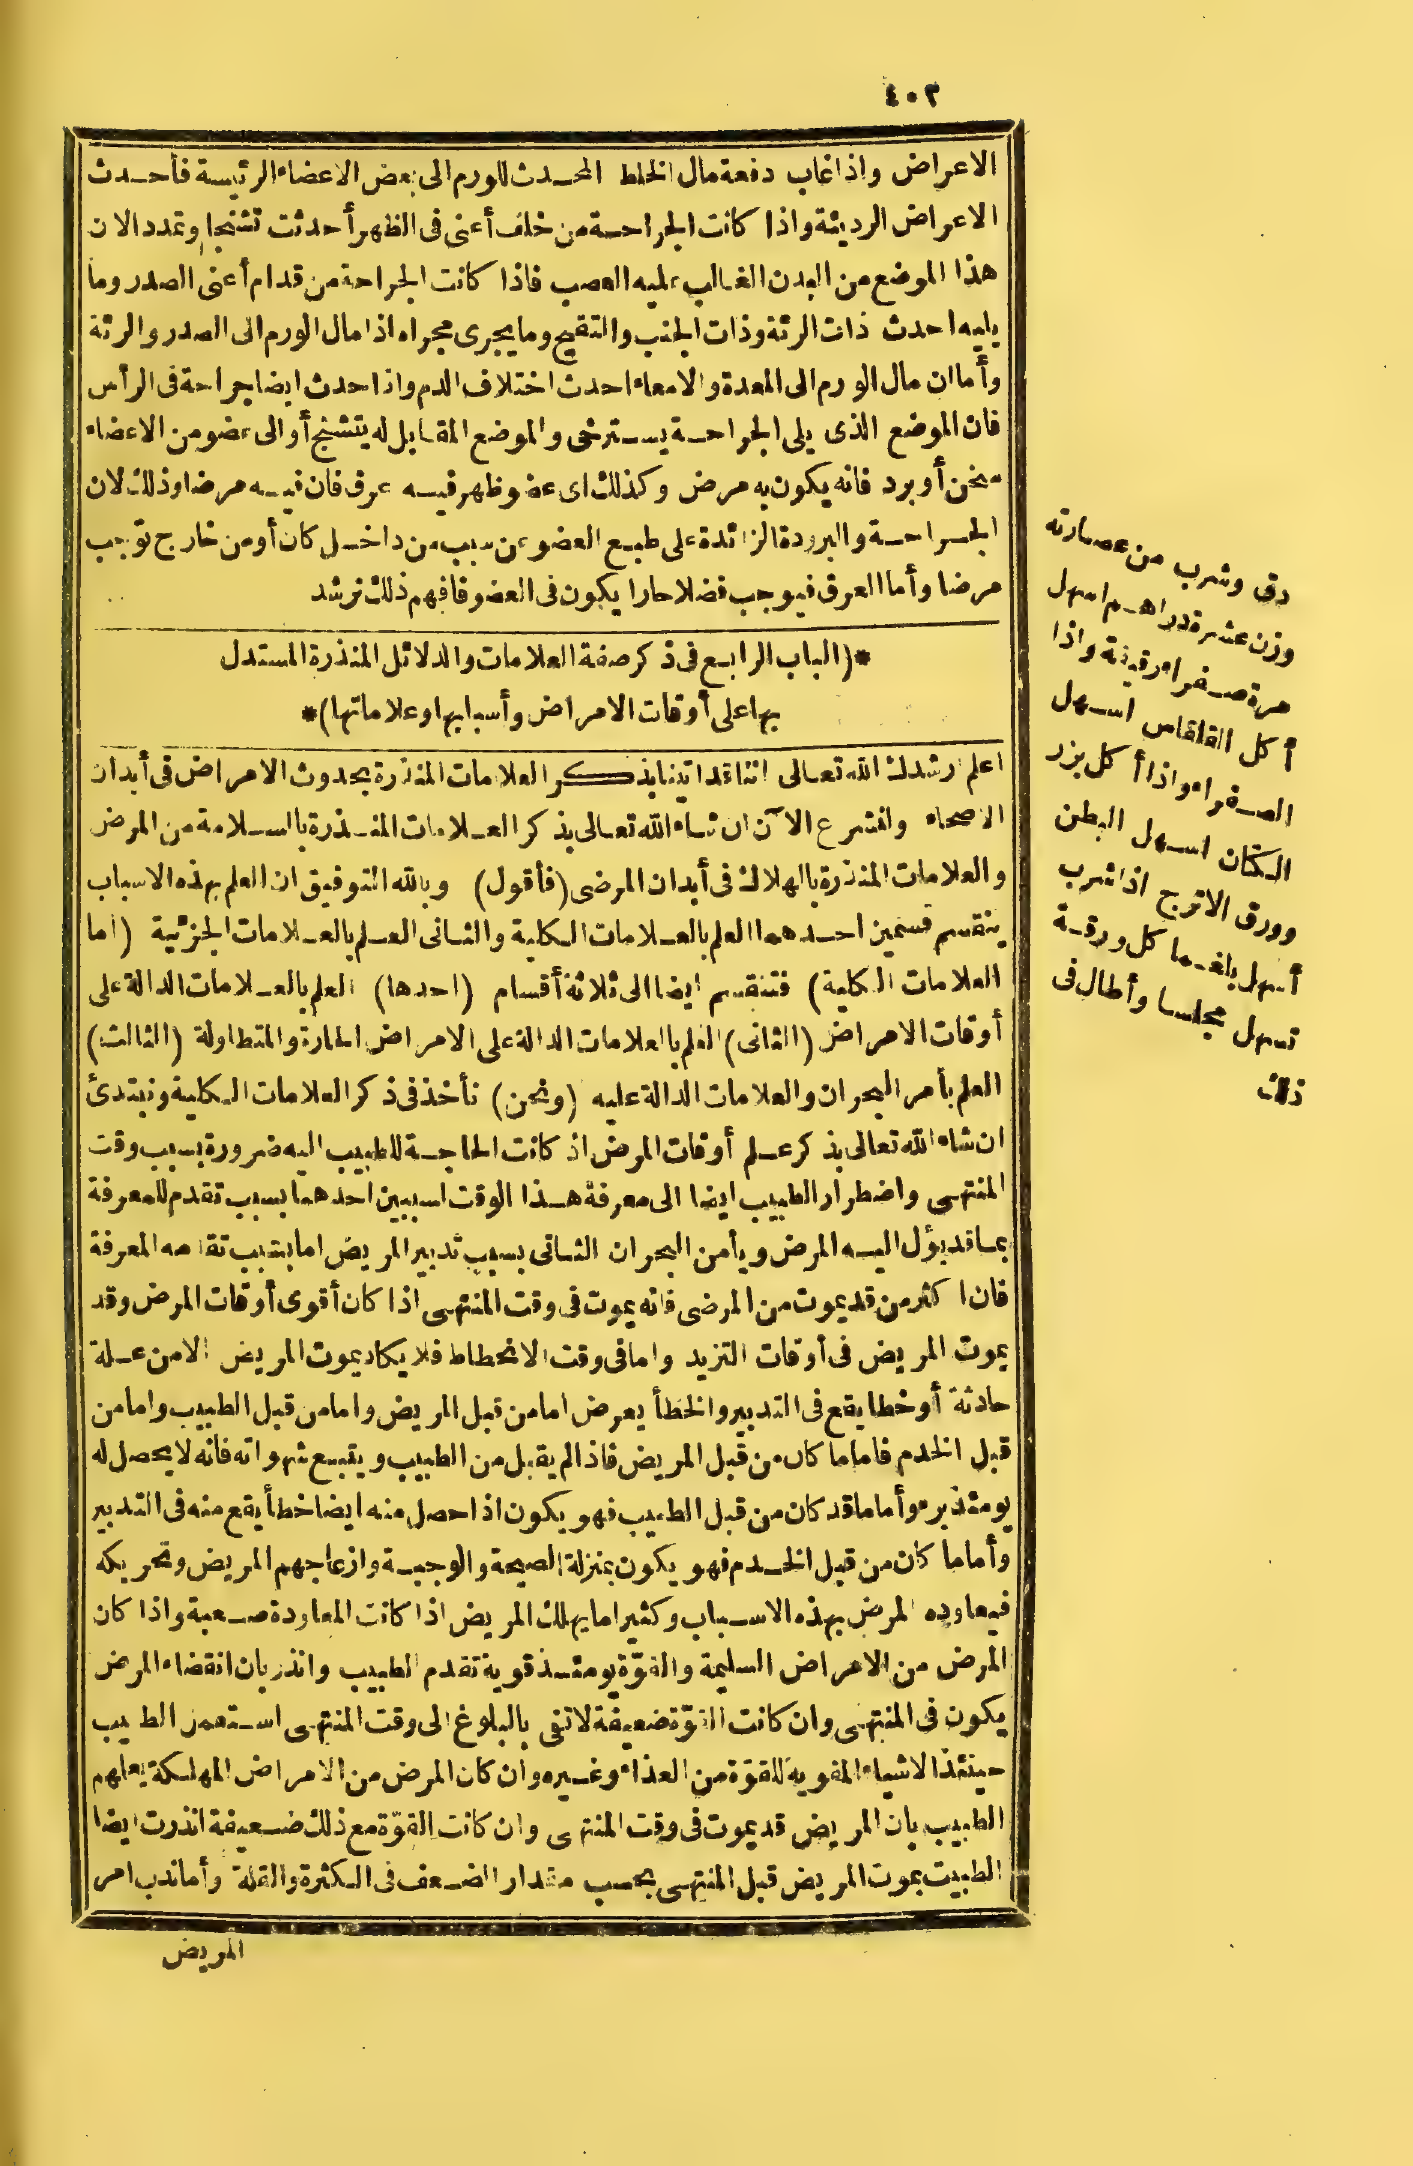 ٤٠٢
الاعراض واذا غاب دفعة مال الخلط المحدث للورم الى بعض الاعضاء الرئيسة فأحدث
الاعراض الرديئة واذا كانت الجراحة من خلف أعنى فى الظهر أحدثت تشنجا وتمدد الان
هذا الموضع من البدن الغالب عليه العصب فاذا كانت الجراحة من قدام أعنى الصدر وما
يليه احدث ذات الرئة وذات الجنب والتقيح وما يجرى مجراه اذا مال الورم الى الصدر والرئة
وأما ان مال الورم الى المعدة والامعاء احدث اختلاف الدم واذا حدث ايضا جراحة فى الرأس
فان الموضع الذى يلى الجراحة يسترخى والموضع المقابل له يتشنج أو الى عضو من الاعضاء
سخن أو برد فانه يكون به مرض وكذلك اى عضو ظهر فيه عرق فان فيه مرضا وذلك لان
الجراحة والبرودة الزائدة على طبع العضو عن سبب من داخل كان أو من خارج توجب
مرضا وأما العرق فيوجب فضلا حارا يكون فى العضو فافهم ذلك ترشد
*(الباب الرابع فى ذكر صفة العلامات والدلائل المنذرة المستدل
بها على أوقات الامراض وأسبابها وعلاماتها)*
اعلم ارشدك الله تعالى اننا قد اتينا بذكر العلامات المنذرة بحدوث الامراض فى أبدان
الاصحاء ولنشرع الآن ان شاء الله تعالى بذكر العلامات المنذرة بالسلامة من المرض
والعلامات المنذرة بالهلاك فى أبدان المرضى (فأقول) وبالله التوفيق ان العلم بهذه الاسباب
ينقسم قسمين احدهما العلم بالعلامات الكلية والثانى العلم بالعلامات الجزئية (أما
العلامات الكلية) فتنقسم ايضا الى ثلاثة أقسام (احدها) العلم بالعلامات الدالة على
أوقات الامراض (الثانى) العلم بالعلامات الدالة على الامراض الحارة والمتطاولة (الثالث)
العلم بأمر البحران والعلامات الدالة عليه (ونحن) نأخذ فى ذكر العلامات الكلية ونبتدئ
ان شاء الله تعالى بذكر علم أوقات المرض اذ كانت الحاجة للطبيب اليه ضرورة بسبب وقت
المنتهى واضطرار الطبيب ايضا الى معرفة هذا الوقت لسببين احدهما بسبب تقدم للمعرفة
بما قد يؤل اليه المرض ويأمن البحران الثانى بسبب تدبير المريض اما بسبب تقدمه المعرفة
فان اكثر من قد يموت من المرضى فانه يموت فى وقت المنتهى اذا كان أقوى أوقات المرض وقد
يموت المريض فى أوقات التزيد واما فى وقت الانحطاط فلا يكاد يموت المريض الا من علة
حادثة أو خطا يقع فى التدبير والخطأ يعرض اما من قبل المريض واما من قبل الطبيب واما من
قبل الخدم فاما ما كان من قبل المريض فاذا لم يقبل من الطبيب ويتبع شهواته فانه لا يحصل له
يومئذ برء وأما ما قد كان من قبل الطبيب فهو يكون اذا حصل منه ايضا خطأ يقع منه فى التدبير
وأما ما كان من قبل الخدم فهو يكون بمنزلة الصيحة والوجبة وازعاجهم المريض وتحريكه
فيعاوده المرض بهذه الاسباب وكثيرا ما يهلك المريض اذا كانت المعاودة صعبة واذا كان
المرض من الامراض السليمة والقوّة يومئذ قوية تقدم الطبيب وانذر بان انقضاء المرض
يكون فى المنتهى وان كانت القوّة ضعيفة لا تفى بالبلوغ الى وقت المنتهى استعمل الطبيب
حينئذ الاشياء المقوية للقوّة من الغذاء وغيره وان كان المرض من الامراض المهلكة يعلمهم
الطبيب بان المريض قد يموت فى وقت المنتهى وان كانت القوّة مع ذلك ضعيفة انذرت ايضا
الطبيت بموت المريض قبل المنتهى بحسب مقدار الضعف فى الكثرة والقلة وأما ندب امر
المريض
دق وشرب من عصارته
وزن عشرة دراهم اسهل
مرة صفراء رقيقة واذا
أكل القلقاس اسهل
الصفراء واذا أكل بزر
الكتان اسهل البطن
وورق الاترج اذا شرب
أسهل بلغما كل ورقة
تسهل مجلسا وأطال فى
ذلك